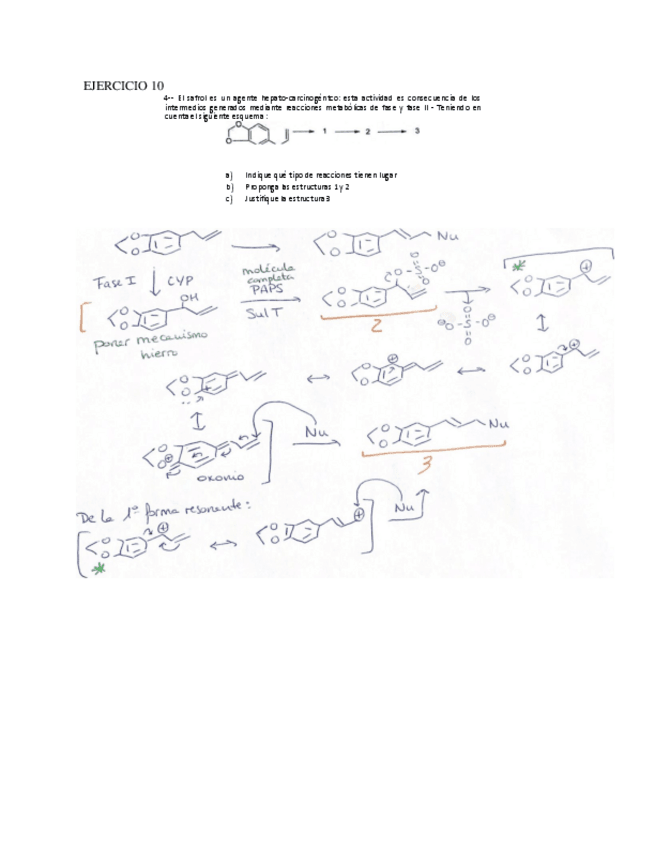 EJERCICIO 10
4-- El safrol es un agente hepato-carcinogéntco: esta actividad es consecuencia de los
intermedios generados mediante reacciones metabólicas de fase y fase II - Teniendo en
cuenta el siguiente esquema :
O
O
1
2
3
a) Indique qué tipo de reacciones tienen lugar
b) Proponga las estructuras 1 y 2
c) Justifique la estructura 3
Nu
Fase I
CYP
OH
molécula
completa
PAPS
SulT
poner mecanismo
hierro
2
*
oxonio
Nu
Nu
3
De la 1ª forma resonante:
Nu
*